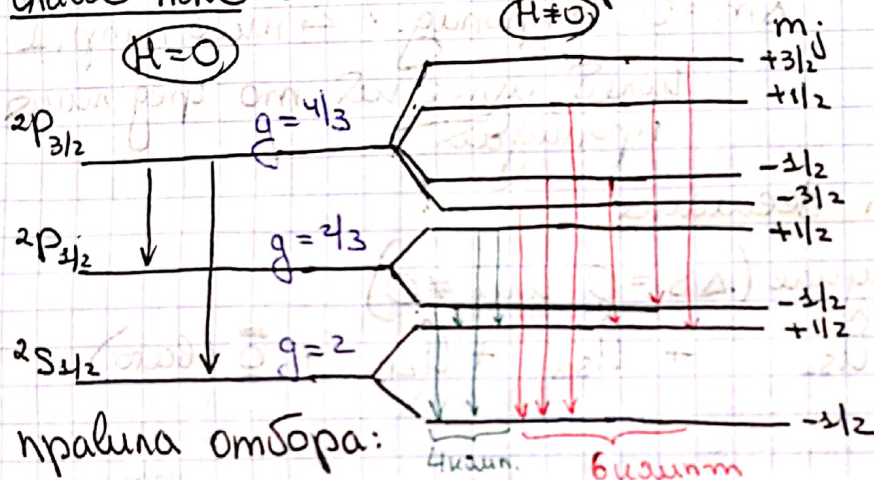 слабое поле
H=0
H≠0
mj
+3/2
+1/2
²P3/2
g = 4/3
-1/2
-3/2
²P1/2
g = 2/3
+1/2
-1/2
+1/2
²S1/2
g = 2
-1/2
правила отбора:
4 комп.
6 компт